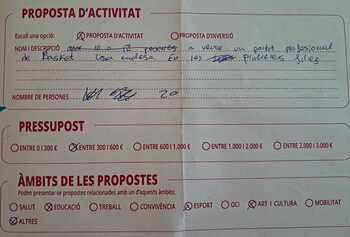 PROPOSTA D'ACTIVITAT
Escull una opció: PROPOSTA D'ACTIVITAT PROPOSTA D'INVERSIÓ
NOM I DESCRIPCIÓ a veure un partit profesional
de Basket Liga endesa. En las primeras filas
NOMBRE DE PERSONES 20
PRESSUPOST
ENTRE 0 I 300 € ENTRE 300 I 600 € ENTRE 600 I 1.000 € ENTRE 1.000 I 2.000 € ENTRE 2.000 I 3.000 €
ÀMBITS DE LES PROPOSTES
Poden presentar-se propostes relacionades amb un d'aquests àmbits:
SALUT EDUCACIÓ TREBALL CONVIVÈNCIA ESPORT OCI ART I CULTURA MOBILITAT
ALTRES